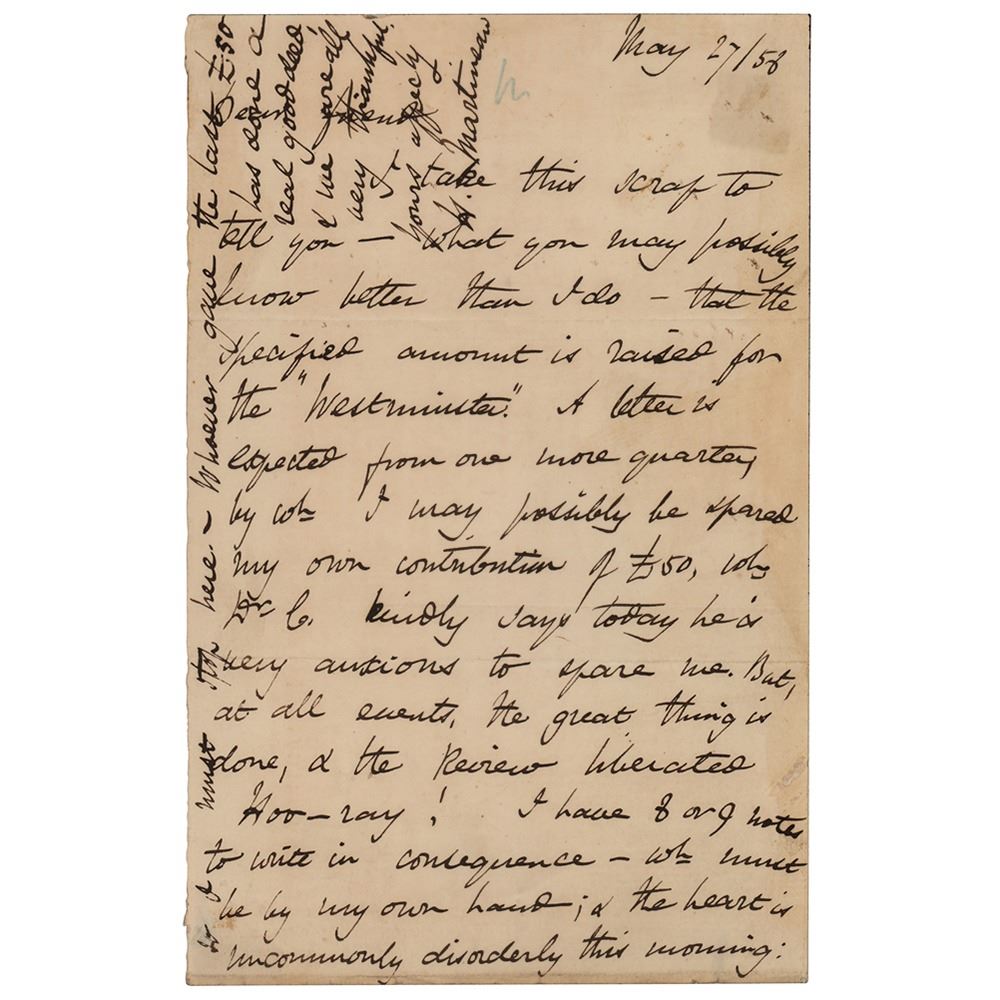 May 27/58
Dear Friend
I take this scrap to
tell you — what you may possibly
know better than I do — that the
specified amount is raised for
the "Westminster." A letter is
expected from one more quarter,
by wh I may possibly be spared
my own contribution of £50, wh
Dr C. kindly says today he is
very anxious to spare me. But,
at all events, the great thing is
done, & the Review liberated
Hoo-ray! I have 8 or 9 notes
to write in consequence — wh must
be by my own hand; & the heart is
uncommonly disorderly this morning:
so I must stop here — Whoever gave the last £50
has done a
real good deed
& we are all
very thankful.
Yours affecly
H. Martineau